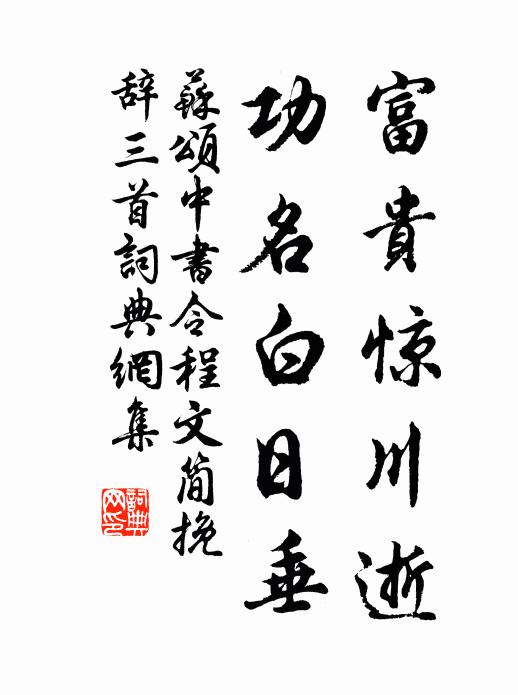 富貴惊川逝
功名白日垂
蘇頌中書令程文简挽
辞三首詞典網集
詞典网印